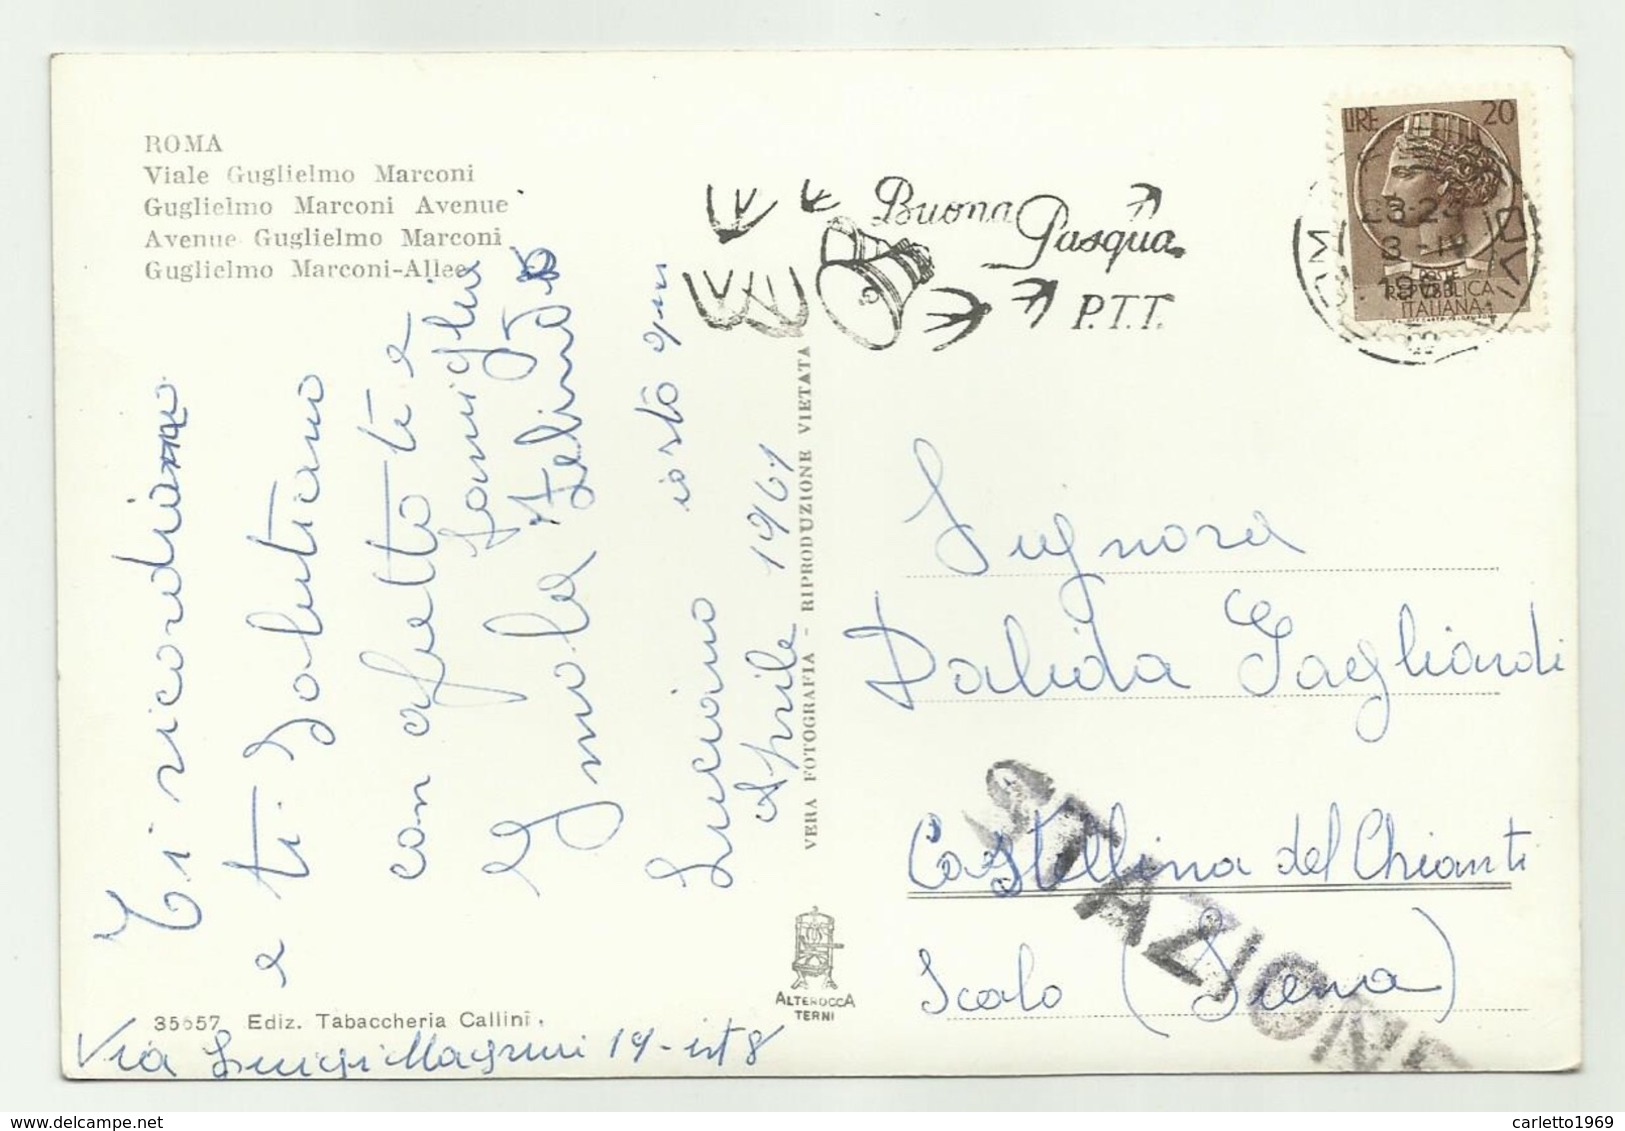 ROMA
Viale Guglielmo Marconi
Guglielmo Marconi Avenue
Avenue Guglielmo Marconi
Guglielmo Marconi-Allee
Buona Pasqua
P.T.T.
LIRE 20
POSTE
REPUBBLICA
ITALIANA
ROMA
23-24
3-IV
1961
Ti ricordiamo
e ti salutiamo
con affetto te e
famiglia
Imola
Luciano
Aprile 1961
VERA FOTOGRAFIA - RIPRODUZIONE VIETATA
Signora
Dalida Tagliardi
Castellina del Chianti
Scalo (Siena)
STAZIONE
ALTEROCCA
TERNI
35657 Ediz. Tabaccheria Callini
Via Luigi 19 - int 8
carletto1969